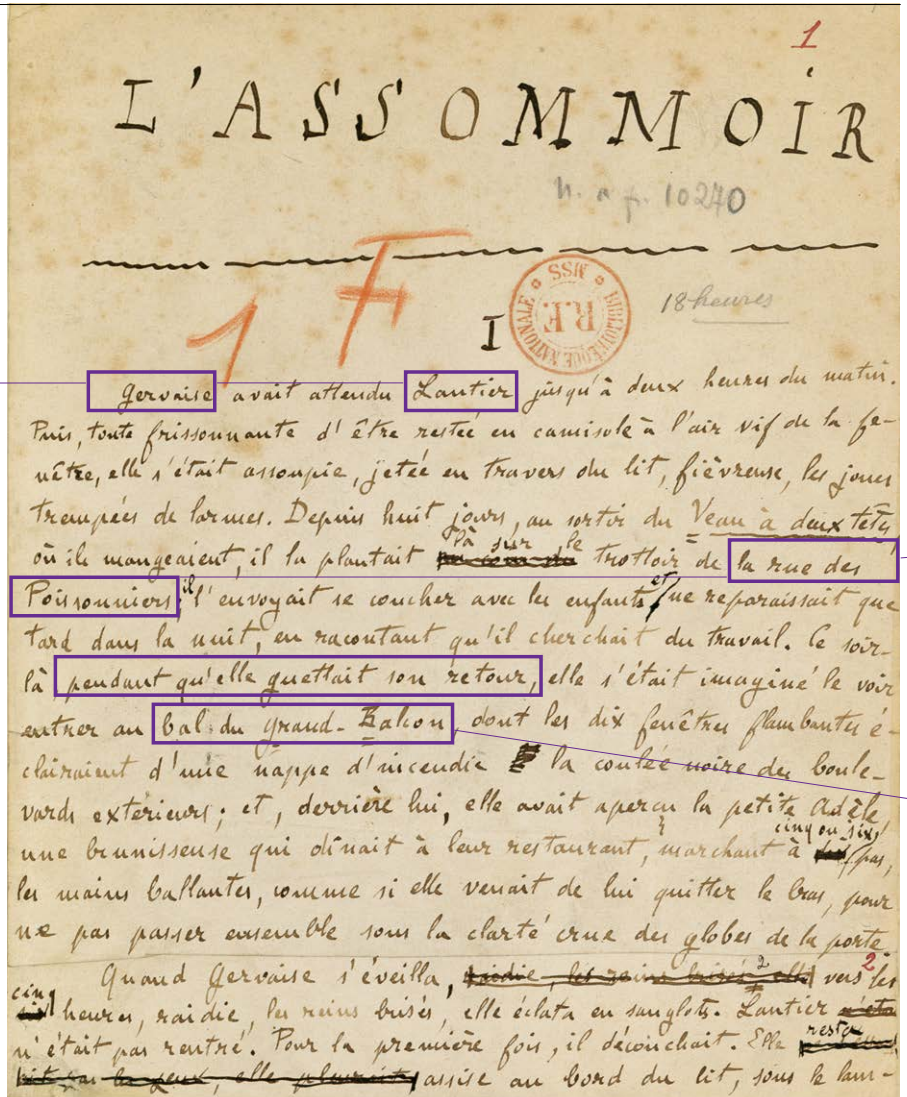 1
L'ASSOMMOIR
n. a f. 10270
1 F
I
BIBLIOTHÈQUE NATIONALE MSS R.F.
18 heures
Gervaise avait attendu Lantier jusqu'à deux heures du matin.
Puis, toute frissonnante d'être restée en camisole à l'air vif de la fe-
nêtre, elle s'était assoupie, jetée en travers du lit, fièvreuse, les joues
trempées de larmes. Depuis huit jours, au sortir du Veau à deux têtes,
où ils mangeaient, il la plantait là sur le trottoir de la rue des
Poissonniers; il l'envoyait se coucher avec les enfants et ne reparaissait que
tard dans la nuit, en racontant qu'il cherchait du travail. Ce soir-
là pendant qu'elle guettait son retour, elle s'était imaginé le voir
entrer au bal du Grand-Balcon, dont les dix fenêtres flambantes é-
clairaient d'une nappe d'incendie la coulée noire des boule-
vards extérieurs; et, derrière lui, elle avait aperçu la petite Adèle,
une brunisseuse qui dînait à leur restaurant, marchant à cinq ou six pas,
les mains ballantes, comme si elle venait de lui quitter le bras, pour
ne pas passer ensemble sous la clarté crue des globes de la porte
Quand Gervaise s'éveilla, raidie, les reins brisés, elle vers les
2
cinq heures, raidie, les reins brisés, elle éclata en sanglots. Lantier
n'était pas rentré. Pour la première fois, il découchait. Elle resta
assise au bord du lit, sous le lam-